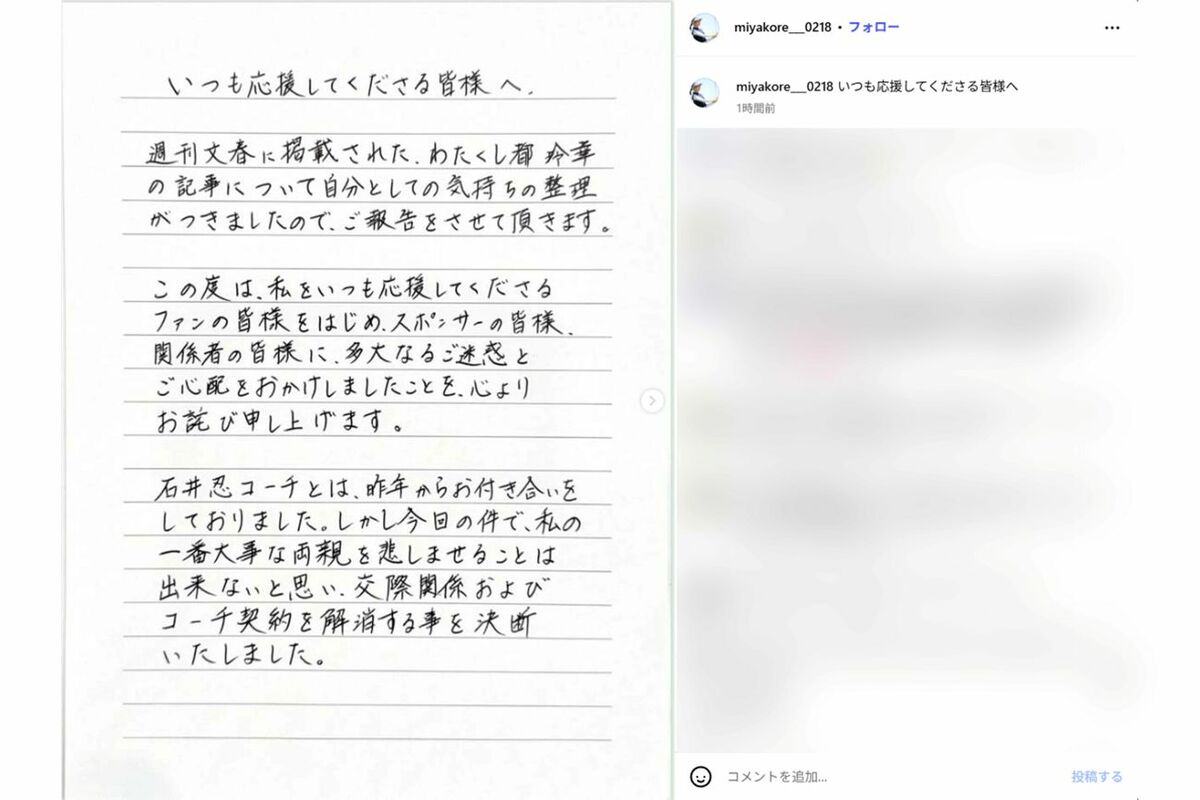 いつも応援してくださる皆様へ.
週刊文春に掲載された、わたくし都 玲華
の記事について自分としての気持ちの整理
がつきましたので、ご報告をさせて頂きます。
この度は、私をいつも応援してくださる
ファンの皆様をはじめ、スポンサーの皆様、
関係者の皆様に、多大なるご迷惑と
ご心配をおかけしましたことを、心より
お詫び申し上げます。
石井忍コーチとは、昨年からお付き合いを
しておりました。しかし今回の件で、私の
一番大事な両親を悲しませることは
出来ないと思い、交際関係および
コーチ契約を解消する事を決断
いたしました。
miyakore___0218 • フォロー
miyakore___0218 いつも応援してくださる皆様へ
1時間前
コメントを追加...
投稿する